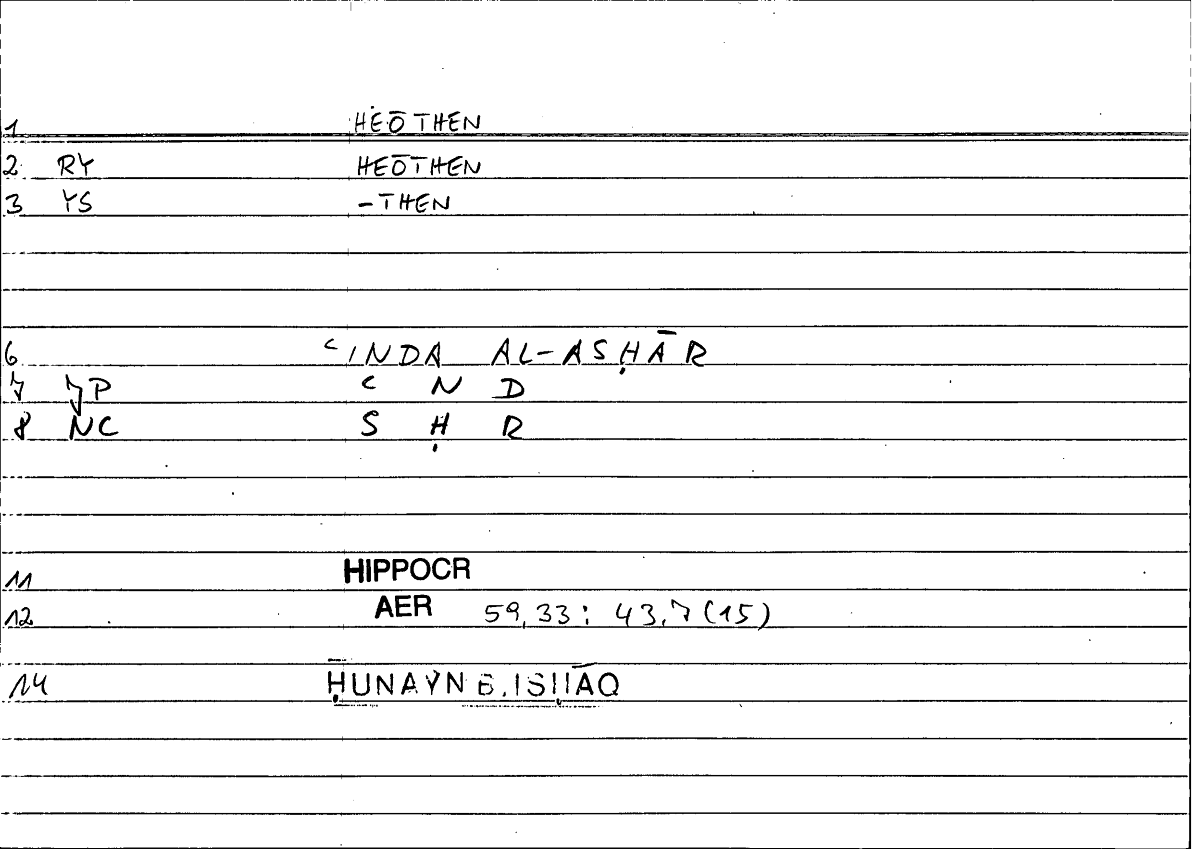 1 HEŌTHEN
2 RY HEŌTHEN
3 YS -THEN
6 ʿINDA AL-ASḤĀR
7 JP ʿ N D
8 NC S Ḥ R
11 HIPPOCR
12 AER 59,33: 43,7 (15)
14 ḤUNAYN B. ISḤĀQ